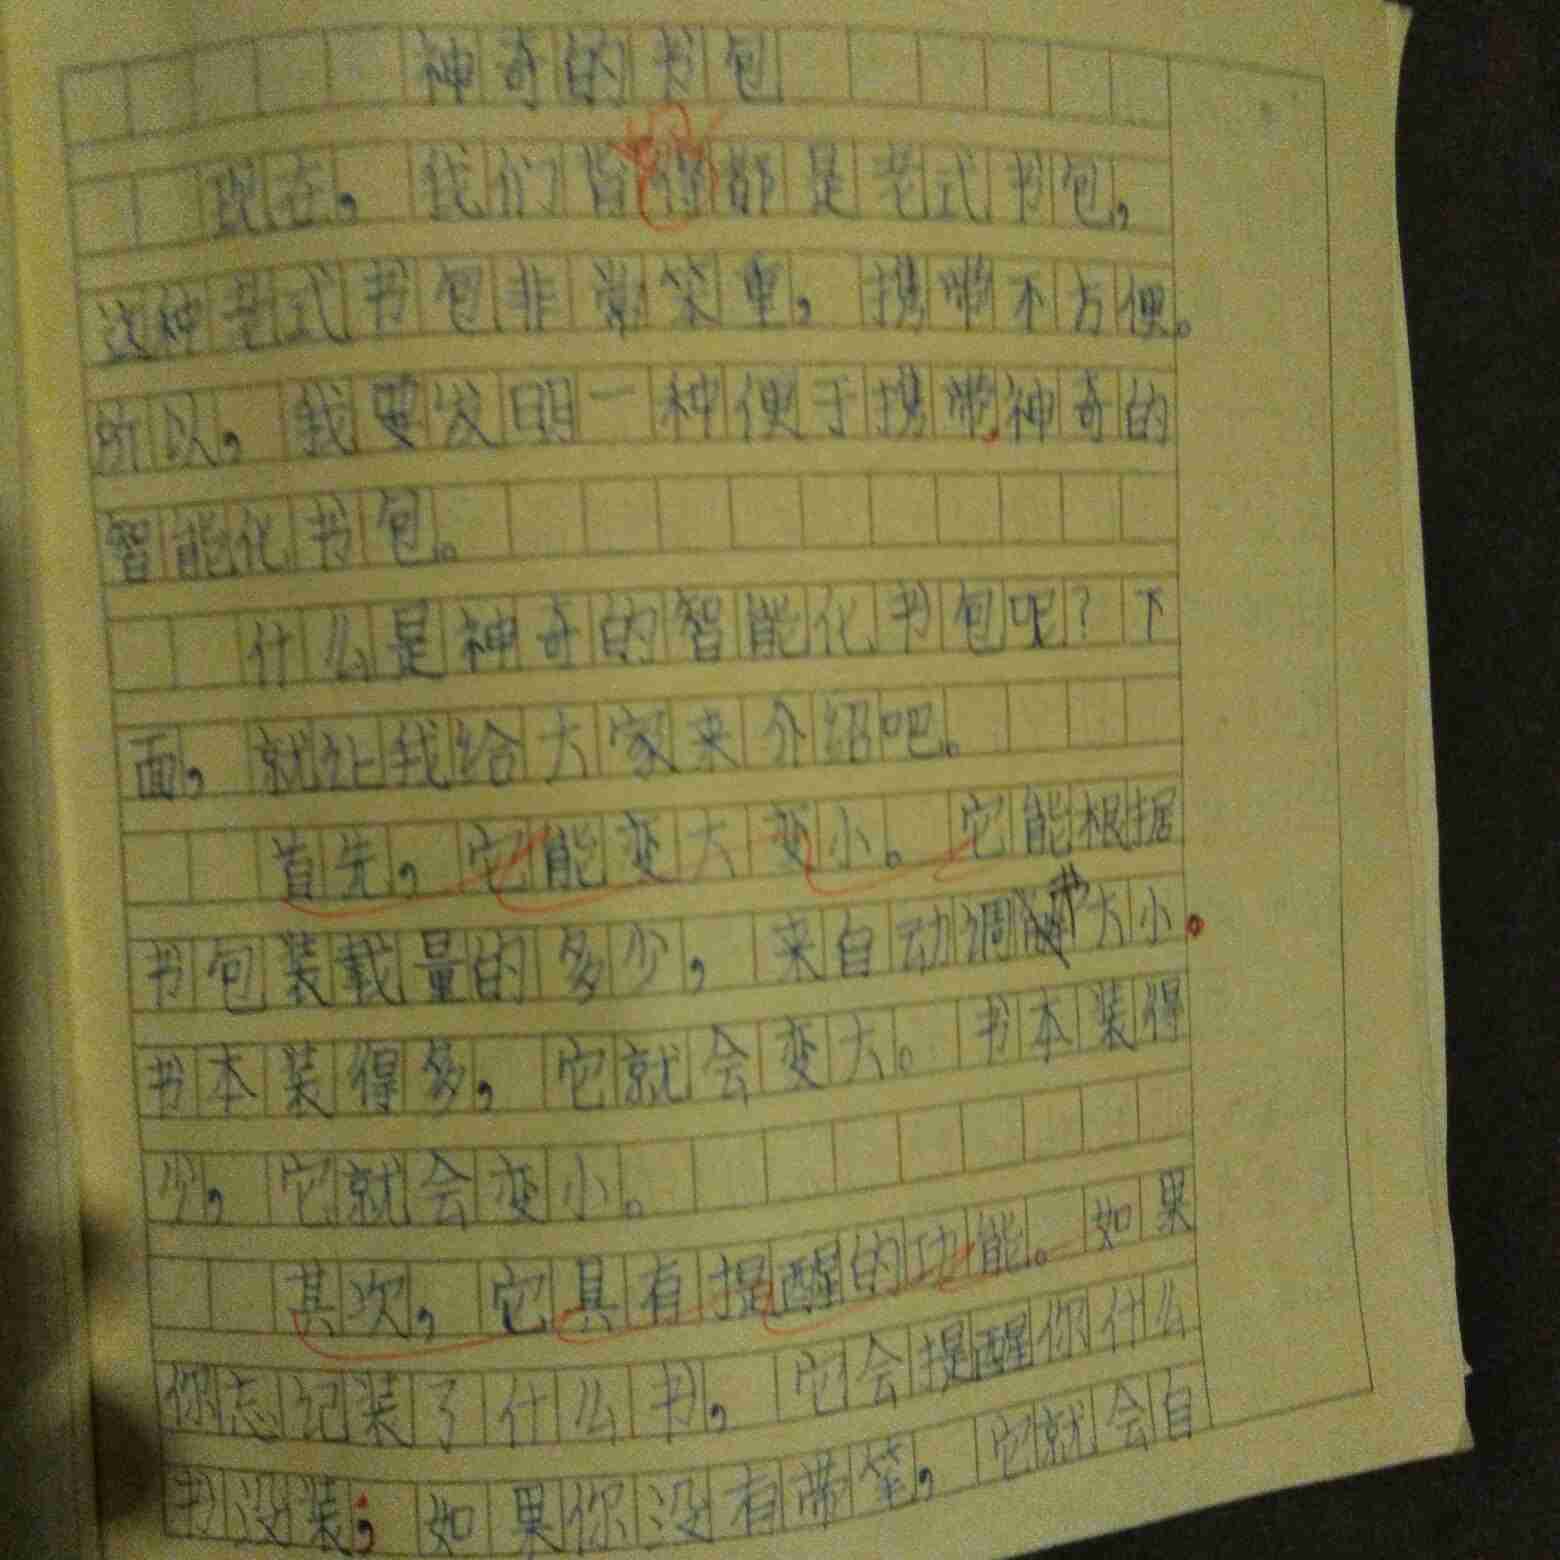 神奇的书包
现在，我们背得都是老式书包，
这种老式书包非常笨重，携带不方便。
所以，我要发明一种便于携带，神奇的
智能化书包。
什么是神奇的智能化书包呢？下
面，就让我给大家来介绍吧。
首先，它能变大变小。它能根据
书包装载量的多少，来自动调节大小。
书本装得多，它就会变大。书本装得
少，它就会变小。
其次，它具有提醒的功能。如果
你忘记装了什么书，它会提醒你什么
书没装；如果你没有带笔，它就会自